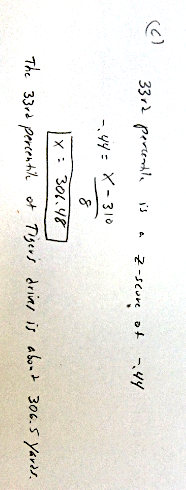 (c) 33rd percentile is a z-score of -.44
-.44 = X - 310 / 8
X = 306.48
The 33rd percentile of Tigers drives is about 306.5 yards.